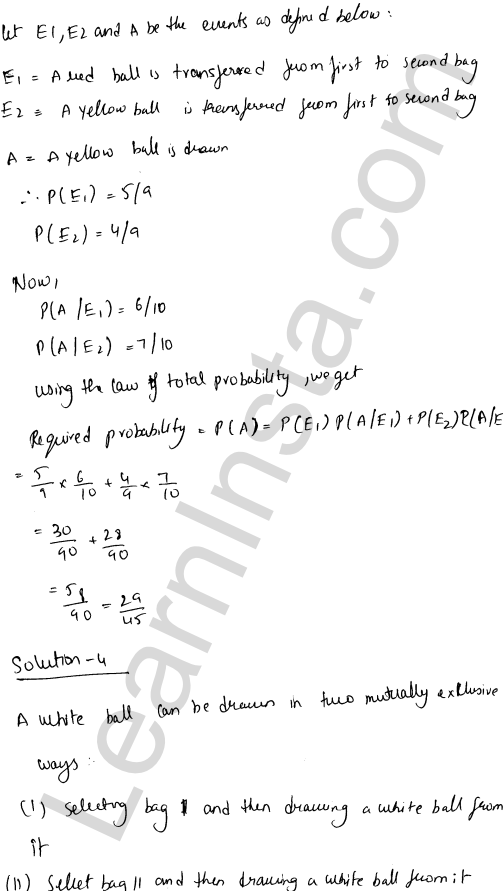 let E1, E2 and A be the events as defined below :
E1 = A red ball is transferred from first to second bag
E2 = A yellow ball is transferred from first to second bag
A = A yellow ball is drawn
∴ P(E1) = 5/9
P(E2) = 4/9
Now,
P(A/E1) = 6/10
P(A/E2) = 7/10
using the law of total probability, we get
Required probability = P(A) = P(E1) P(A/E1) + P(E2) P(A/E
= 5/9 × 6/10 + 4/9 × 7/10
= 30/90 + 28/90
= 58/90 = 29/45
Solution-4
A white ball can be drawn in two mutually exclusive
ways :-
(I) selecting bag I and then drawing a white ball from
it
(II) Select bag II and then drawing a white ball from it
LearnInsta.com